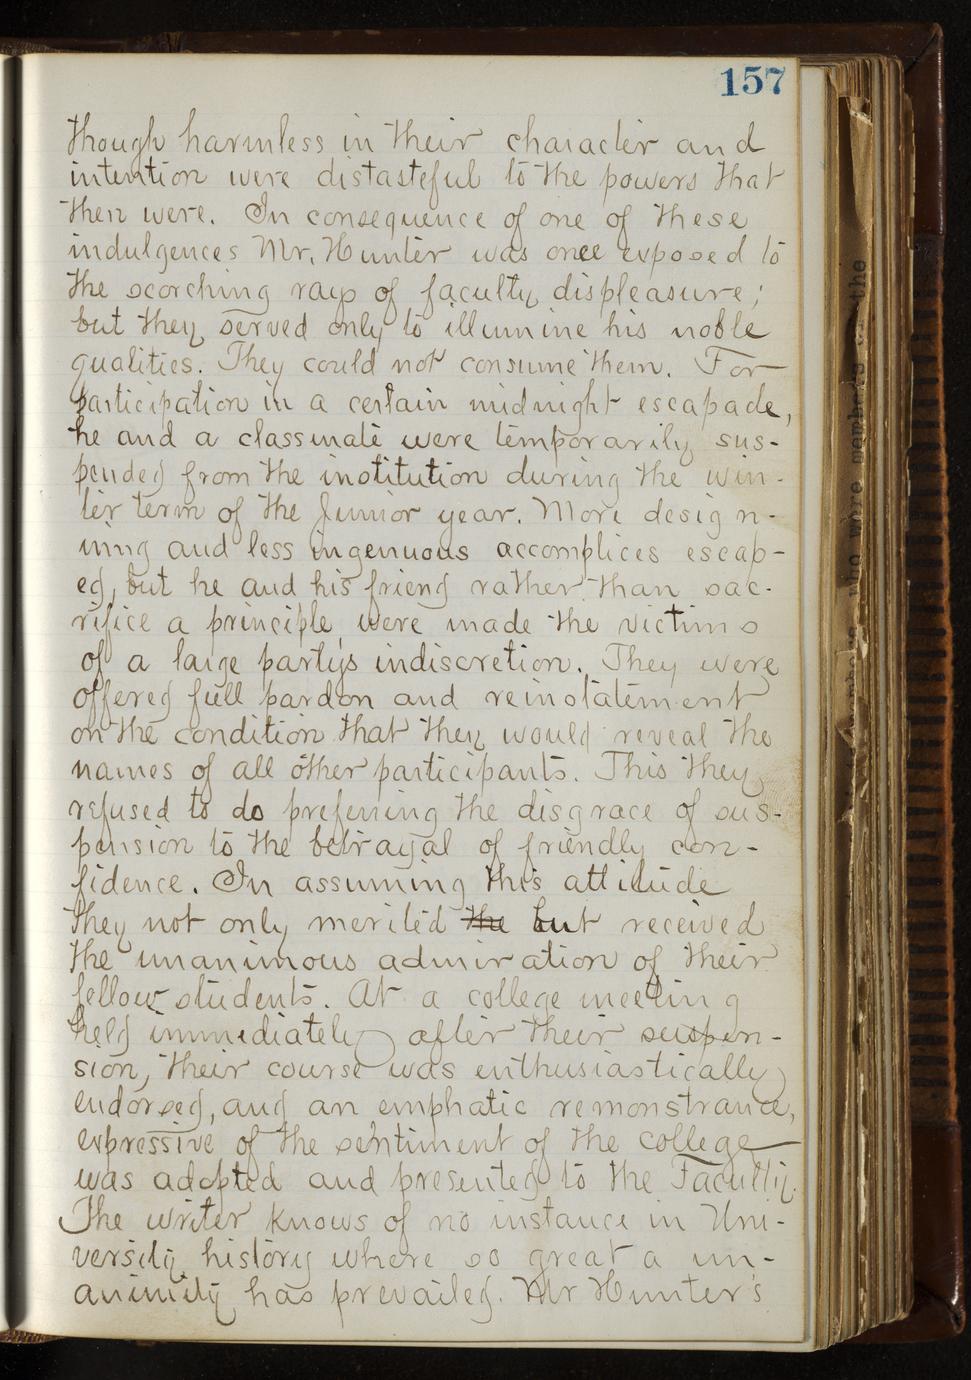 157
though harmless in their character and
intention were distasteful to the powers that
then were. In consequence of one of these
indulgences Mr. Hunter was once exposed to
the scorching rays of faculty displeasure;
but they served only to illumine his noble
qualities. They could not consume them. For
participation in a certain midnight escapade,
he and a classmate were temporarily sus-
pended from the institution during the win-
ter term of the Junior year. More design-
ing and less ingenuous accomplices escap-
ed, but he and his friend rather than sac-
rifice a principle, were made the victims
of a large party's indiscretion. They were
offered full pardon and reinstatement
on the condition that they would reveal the
names of all other participants. This they
refused to do preferring the disgrace of sus-
pension to the betrayal of friendly con-
fidence. In assuming this attitude
they not only merited the but received
the unanimous admiration of their
fellow students. At a college meeting
held immediately after their suspen-
sion, their course was enthusiastically
endorsed, and an emphatic remonstrance,
expressive of the sentiment of the college
was adopted and presented to the Faculty.
The writer knows of no instance in Uni-
versity history where so great a un-
animity has prevailed. Mr Hunter's
who were members of the